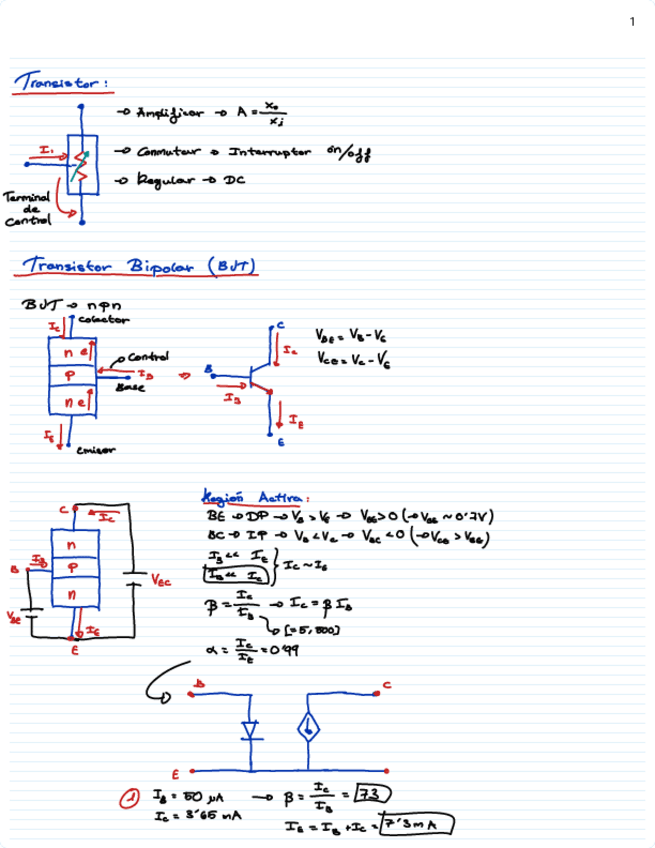 1
Transistor:
→ Amplificar → A = xo/xi
→ Conmutar → Interruptor on/off
→ Regular → DC
I1
Terminal
de
Control
Transistor Bipolar (BJT)
BJT → npn
Colector
IC
n e
p
n e
Control
IB
Base
IE
Emisor
⇒
C
IC
B
IB
IE
E
VBE = VB - VE
VCE = VC - VE
Región Activa:
BE → DP → VB > VE → VBE > 0 (→ VBE ~ 0'7V)
BC → IP → VB < VC → VBC < 0 (→ VCE > VBE)
IB << IE
IB << IC
} IC ~ IE
β = IC/IB → IC = β IB
↳ [=5, 800]
α = IC/IE = 0'99
C
IC
n
B
IB
p
n
VEC
VBE
IE
E
B
C
E
1
IB = 50 μA → β = IC/IB = 73
IC = 3'65 mA
IE = IB + IC = 7'3 mA